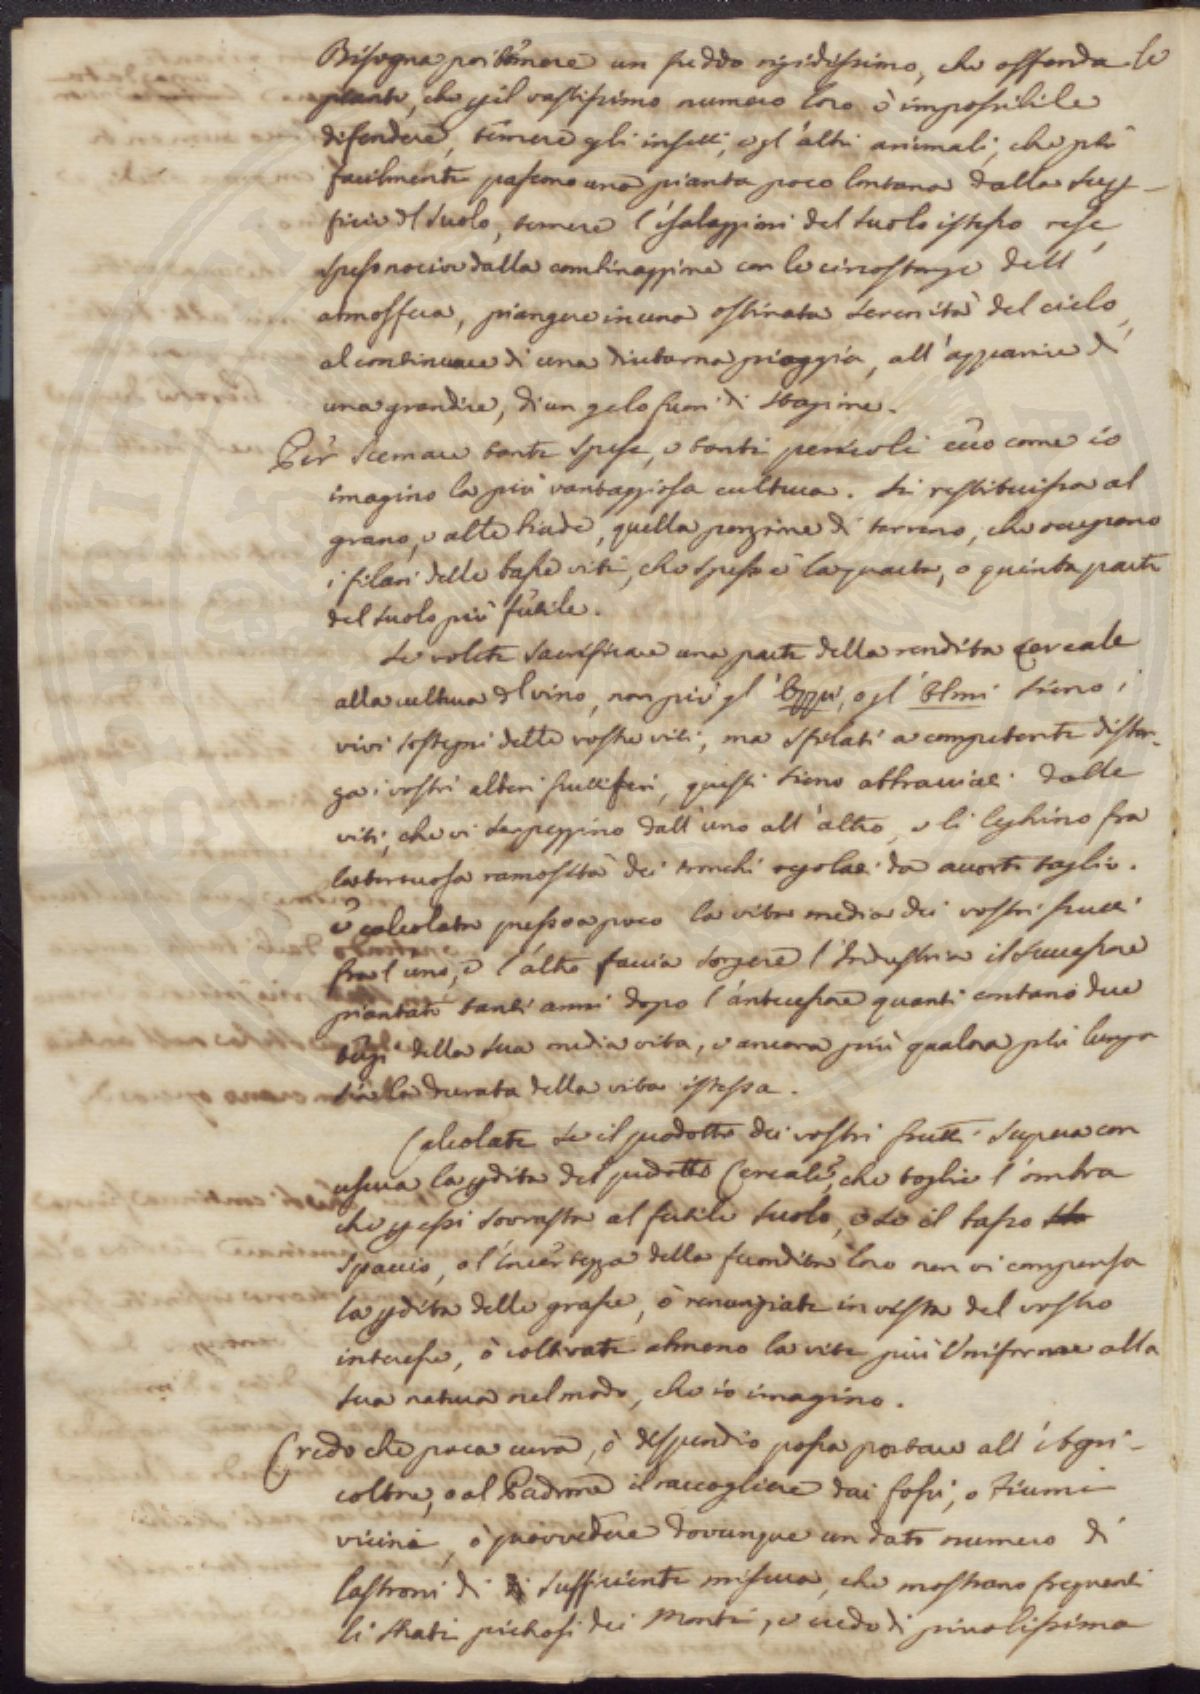 Bisogna poi temere un freddo rigidissimo, che offenda le
piante, che p il vastissimo numero loro è impossibile
difendere, temere gli insetti, e gl'altri animali, che più
facilmente pascono una pianta poco lontana dalla super-
ficie del suolo, temere l'esalazzioni del suolo istesso rese
spesso nocive dalla combinazzione con le circostanze dell'
atmosfera, piangere in una ostinata serenità del cielo,
al continuare di una diuturna pioggia, all'apparire di
una grandine, di un gelo fuori di stagione.
Per scemare tante spese, e tanti pericoli ecco come io
imagino la più vantaggiosa cultura. Si restituissa al
grano, e altre biade, quella porzione di terreno, che occupano
i filari delle basse viti, che spesso è la quarta, o quinta parte
del suolo più fertile.
Se volete sacrificare una parte della rendita cereale
alla cultura del vino, non più gl' Oppi, o gl' Olmi sieno i
vivi sostegni delle vostre viti, ma sfilati a competente distan-
za i vostri alberi fruttiferi, questi sieno abbracciati dalle
viti, che vi serpeggino dall'uno all'altro, e li leghino fra
la tortuosa ramosità dei tronchi regolati da accorto taglio.
E calcolata presso a poco la vita media dei vostri frutti
fra l'uno, e l'altro faccia sorgere l'Industria il successore
piantato tanti anni dopo l'antecessore quanti contano due
terzi della sua media vita, e ancora più qualora più lunga
sia la durata della vita istessa.
Calcolate se il prodotto dei vostri frutti supera con
usura la pdita del prodotto Cereale, che toglie l'ombra
che p essi sovrasta al fertile suolo, e se il basso
spaccio, o l'incertezza della fecondità loro non vi compensa
la pdita delle grasce, ò renunziate in vista del vostro
interesse, ò coltivate almeno la vite più uniforme alla
sua natura nel modo, che io imagino.
Credo che poca cura, ò dispendio possa portare all'Agri-
coltore, o al Padrone il raccogliere dai fossi, o fiumi
vicini, ò provvedere dovunque un dato numero di
lastroni di sufficiente misura, che mostrano frequenti
li strati pietrosi dei Monti, e credo di picciolissima